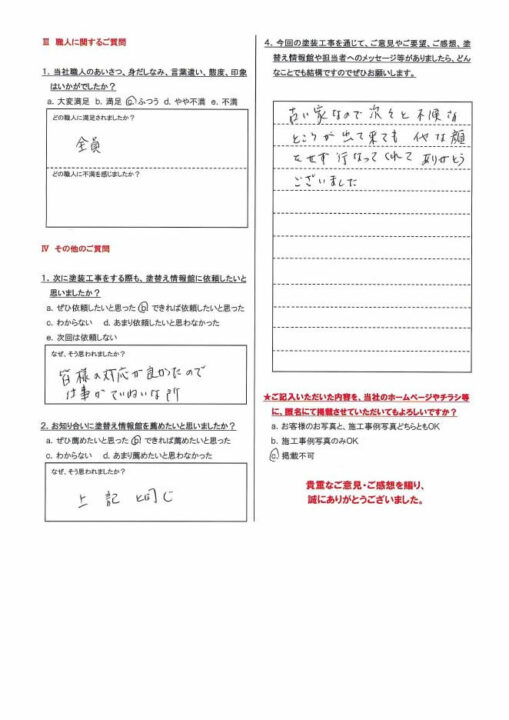 Ⅲ 職人に関するご質問
1. 当社職人のあいさつ、身だしなみ、言葉遣い、態度、印象
はいかがでしたか？
a. 大変満足 b. 満足 c. ふつう d. やや不満 e. 不満
どの職人に満足されましたか？
全員
どの職人に不満を感じましたか？
Ⅳ その他のご質問
1. 次に塗装工事をする際も、塗替え情報館に依頼したいと
思いましたか？
a. ぜひ依頼したいと思った b. できれば依頼したいと思った
c. わからない d. あまり依頼したいと思わなかった
e. 次回は依頼しない
なぜ、そう思われましたか？
皆様の対応が良かったので
仕事がていねいな所
2. お知り合いに塗替え情報館を薦めたいと思いましたか？
a. ぜひ薦めたいと思った b. できれば薦めたいと思った
c. わからない d. あまり薦めたいと思わなかった
なぜ、そう思われましたか？
上記と同じ
4. 今回の塗装工事を通じて、ご意見やご要望、ご感想、塗
替え情報館や担当者へのメッセージ等がありましたら、どん
なことでも結構ですのでぜひお願いします。
古い家なので次々と不便な
ところが出て来ても イヤな顔
をせず行なってくれて ありがとう
ございました
★ご記入いただいた内容を、当社のホームページやチラシ等
に、匿名にて掲載させていただいてもよろしいですか？
a. お客様のお写真と、施工事例写真どちらともOK
b. 施工事例写真のみOK
c. 掲載不可
貴重なご意見・ご感想を賜り、
誠にありがとうございました。